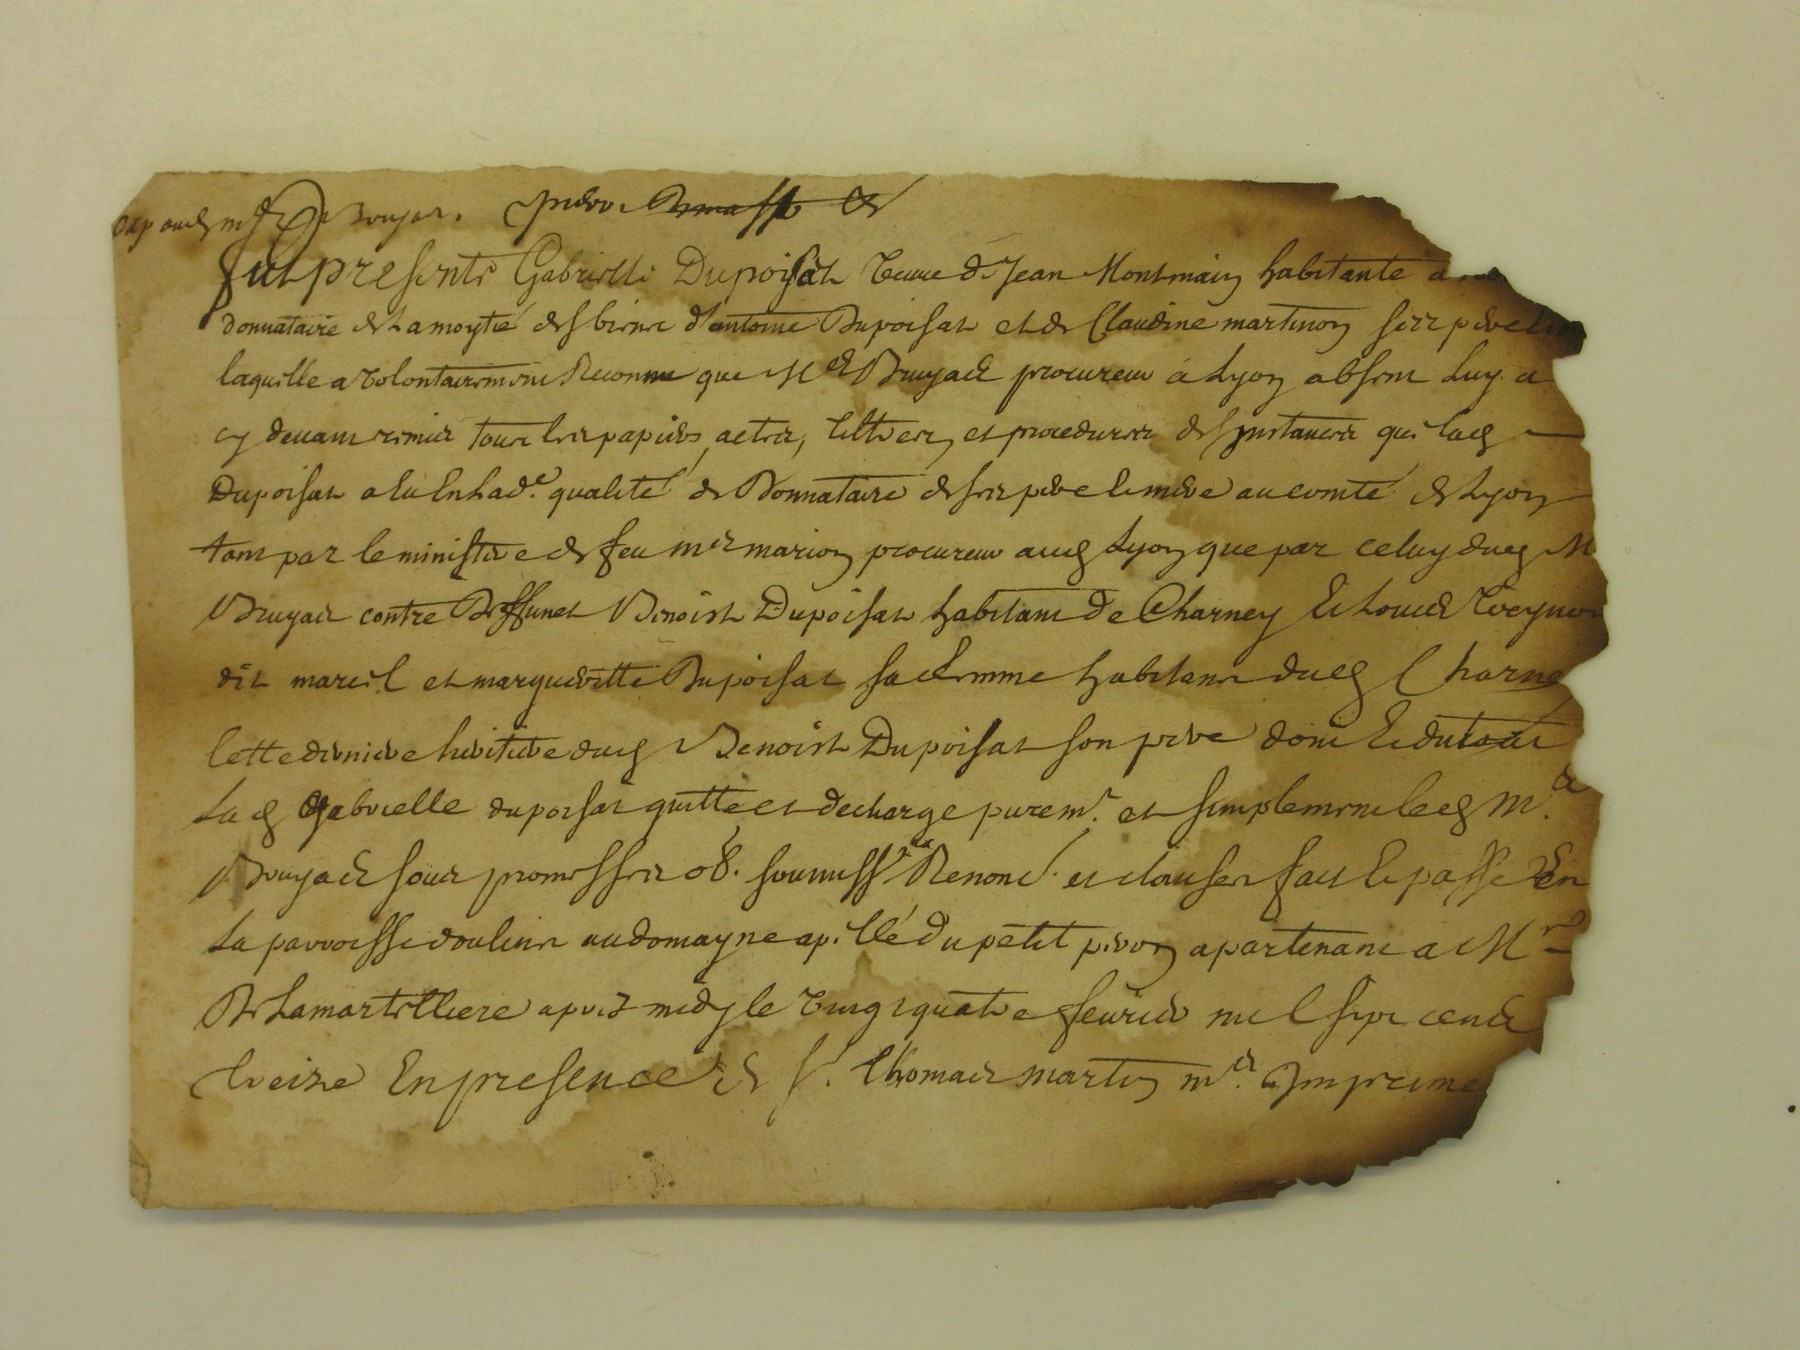 Fut presente Gabrielle Dupoisat veuve de Jean Montmain habitante a
donnataire de La moytié des biens d'antoine Dupoisat et de Claudine martinon ses pere
laquelle a volontairement Reconnu que Me Bruyas procureur a Lyon absent Luy a
cy devant remis tous les papiers, actes, tiltres, et procedures des Instances que lad
Dupoisat a Eu En Lade qualité de Donnataire de ses pere Et mere au comté de Lyon
tant par le ministere de feu me marion procureur aud Lyon que par celuy dud M
Bruyas contre Deffunet Benoist Dupoisat habitant de Charney Et Louis
dit marcil et margueritte Dupoisat sa femme habitans dud Charne
Cette derniere heritiere dud Benoist Dupoisat son pere dont Et du tout
La d Gabrielle dupoisat quitte et decharge puremt. et simplement led Me.
Bruyas sous promesses ob. soumiss Renonc. et clauses fait Et passé En
La parroisse doulins au domayne apellé du petit perron apartenant a Mr
De Lamartilliere apres midy le vingt quatre fevrier mil sept cents
treize En presence de Sr. thomas martin md. Imprime